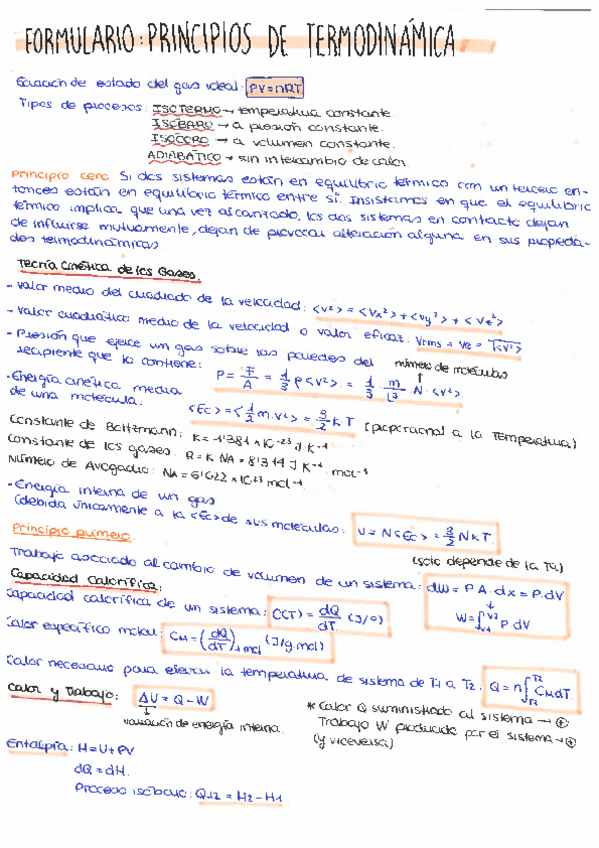 FORMULARIO: PRINCIPIOS DE TERMODINÁMICA
Ecuación de estado del gas ideal: PV=nRT
Tipos de procesos: ISOTERMO → temperatura constante.
ISÓBARO → a presión constante.
ISOCORO → a volumen constante.
ADIABÁTICO → sin intercambio de calor
Principio cero Si dos sistemas están en equilibrio térmico con un tercero en-
tonces están en equilibrio térmico entre sí. Insistamos en que el equilibrio
térmico implica que una vez alcanzado, los dos sistemas en contacto dejan
de influirse mutuamente, dejan de provocar alteración alguna en sus propieda-
des termodinámicas
Teoría Cinética de los Gases.
- Valor medio del cuadrado de la velocidad: <v²> = <Vx²> + <Vy²> + <Vz²>
- Valor cuadrático medio de la velocidad o valor eficaz: Vrms = Ve = √<v²>
- Presión que ejerce un gas sobre las paredes del
recipiente que lo contiene: P = F/A = 1/3 ρ<v²> = 1/3 m/L³ N <v²>
número de moléculas
- Energía cinética media
de una molécula: <Ec> = <1/2 m·v²> = 3/2 k T (proporcional a la Temperatura)
Constante de Boltzmann: K = 1'381 × 10⁻²³ J·K⁻¹
Constante de los gases: R = K·NA = 8'314 J K⁻¹ · mol⁻¹
Número de Avogadro: NA = 6'022 × 10²³ mol⁻¹.
- Energía interna de un gas
(debida únicamente a la <Ec> de sus moléculas: U = N<Ec> = 3/2 NKT.
Principio primero. (solo depende de la Tª)
Trabajo asociado al cambio de volumen de un sistema: dW = P·A·dx = P·dV
W = ∫V1 V2 P dV
Capacidad Calorífica:
Capacidad calorífica de un sistema: C(T) = dQ/dT. (J/º)
Calor específico molar: CM = (dQ/dT) 1 mol (J/g mol)
Calor necesario para elevar la temperatura de sistema de T1 a T2: Q = n∫T1 T2 CMdT
Calor y Trabajo: ΔU = Q - W
variación de energía interna.
* Calor Q suministrado al sistema → ⊕
Trabajo W producido por el sistema → ⊕
(y viceversa)
Entalpía: H = U + PV
dQ = dH.
Proceso isóbaro: Q12 = H2 - H1